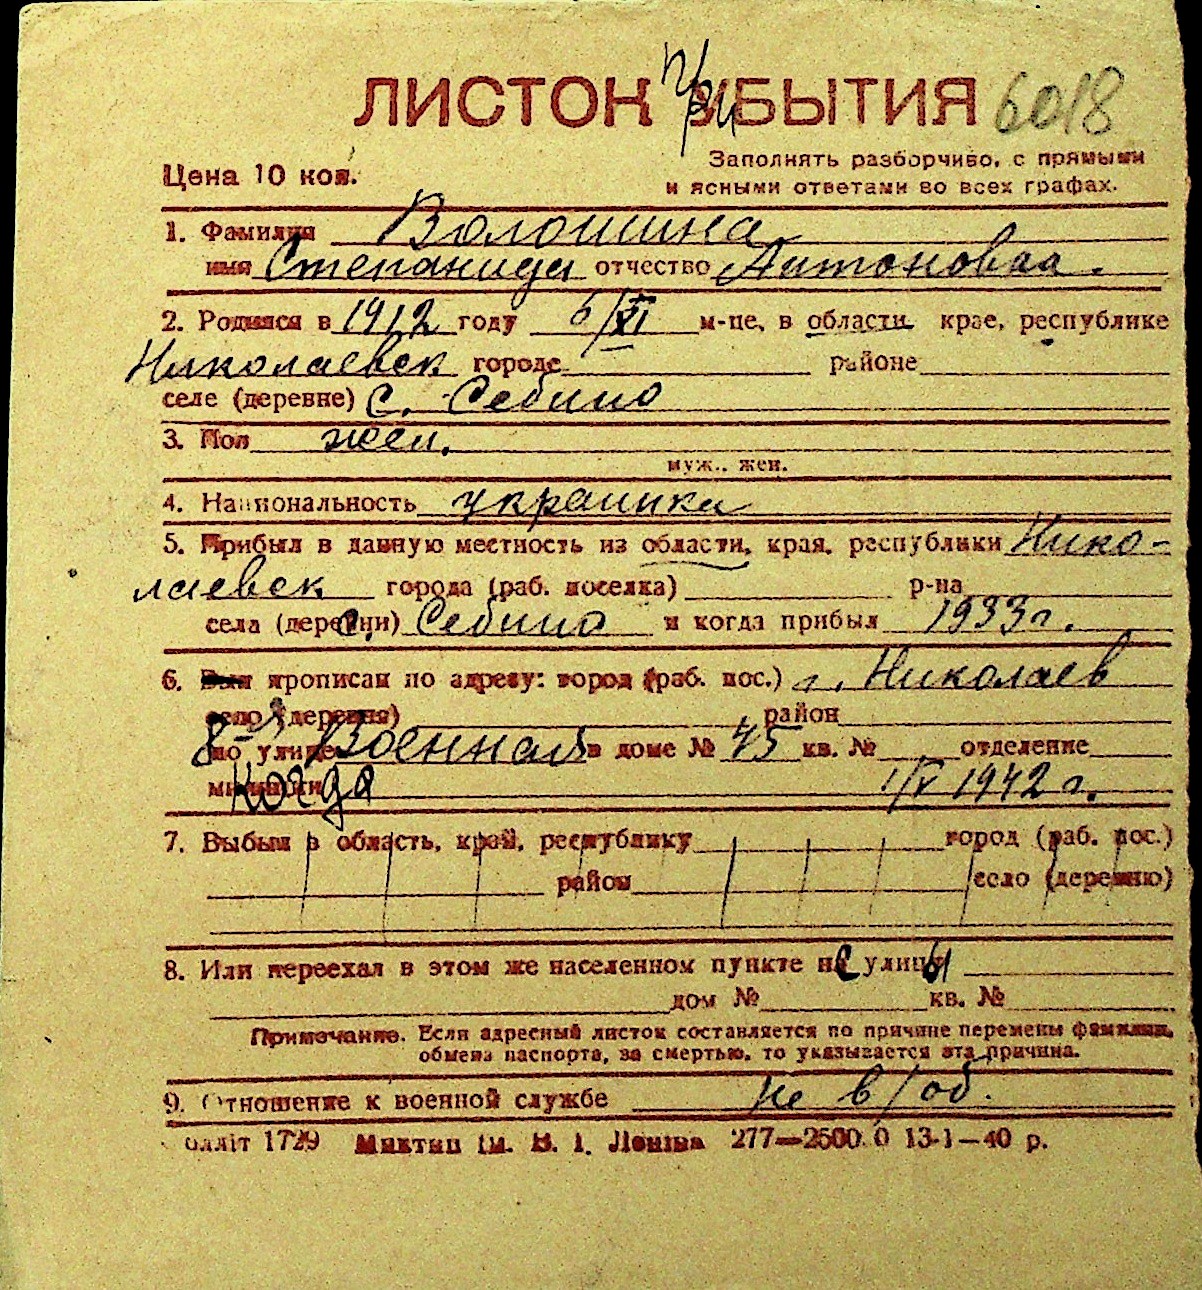 ЛИСТОК при УБЫТИЯ 6018
Цена 10 коп.
Заполнять разборчиво, с прямыми
и ясными ответами во всех графах.
1. Фамилия Волошина
имя Степанида отчество Антоновна.
2. Родился в 1912 году 6/XI м-це, в области крае, республике
Николаевск городе районе
селе (деревне) с. Себино
3. Пол жен.
муж., жен.
4. Национальность украинка
5. Прибыл в данную местность из области, края, республики Нико-
лаевск города (раб. поселка) р-на
села (деревни) с. Себино и когда прибыл 1933 г.
6. прописан по адресу: город (раб. пос.) г. Николаев
село (деревня) район
по улице 8-я Военная в доме № 45 кв. № отделение
милиции Когда 1/IV 1942 г.
7. Выбыл в область, край, республику город (раб. пос.)
район село (деревню)
8. Или переехал в этом же населенном пункте с улицы
дом № кв. №
Примечание. Если адресный листок составляется по причине перемены фамилии,
обмена паспорта, за смертью, то указывается эта причина.
9. Отношение к военной службе не в/об.
Облліт 1729 Миктип ім. В. І. Леніна 277—2500.0 13-1—40 р.